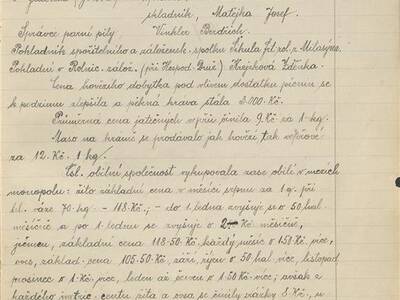 skladník, Matějka Josef.
Správce parní pily Winkler Bedřich.
Pokladník spořitelního a záložensk. spolku Sekula řed. rol. z Milatic
Pokladní v Rolnic. zálož. (při Hospod. Druž.) Krejčková Zdenka.
Cena hovězího dobytka pod vlivem dostatku pícnin se
k podzimu zlepšila a pěkná kráva stála 3.000 Kč.
Průměrná cena jatečných vepřů činila 9 Kč za 1 kg.
Maso na hraně se prodávalo jak hovězí tak vepřové
za 12. Kč. 1 kg.
Čsl. obilní společnost vykupovala zase obilí v mezích
monopolu: žito základní cena v měsíci srpnu za 1 q. při
hl. váze 70 kg. - 118 Kč.; - do 1. ledna zvyšuje se o 50 hal.
měsíčně a po 1. lednu se zvyšuje o 2 Kč měsíčně,
ječmen, základní cena 118·50 Kč. každý měsíc o 1·50 Kč, více,
oves, základ. cena 105·50 Kč. září, říjen o 50 hal více, listopad
prosinec o 1 Kč, více, leden až červen o 1·50 Kč, více; avšak z
každého metric. centu žita a ovsa se činily srážky 8 Kč, u